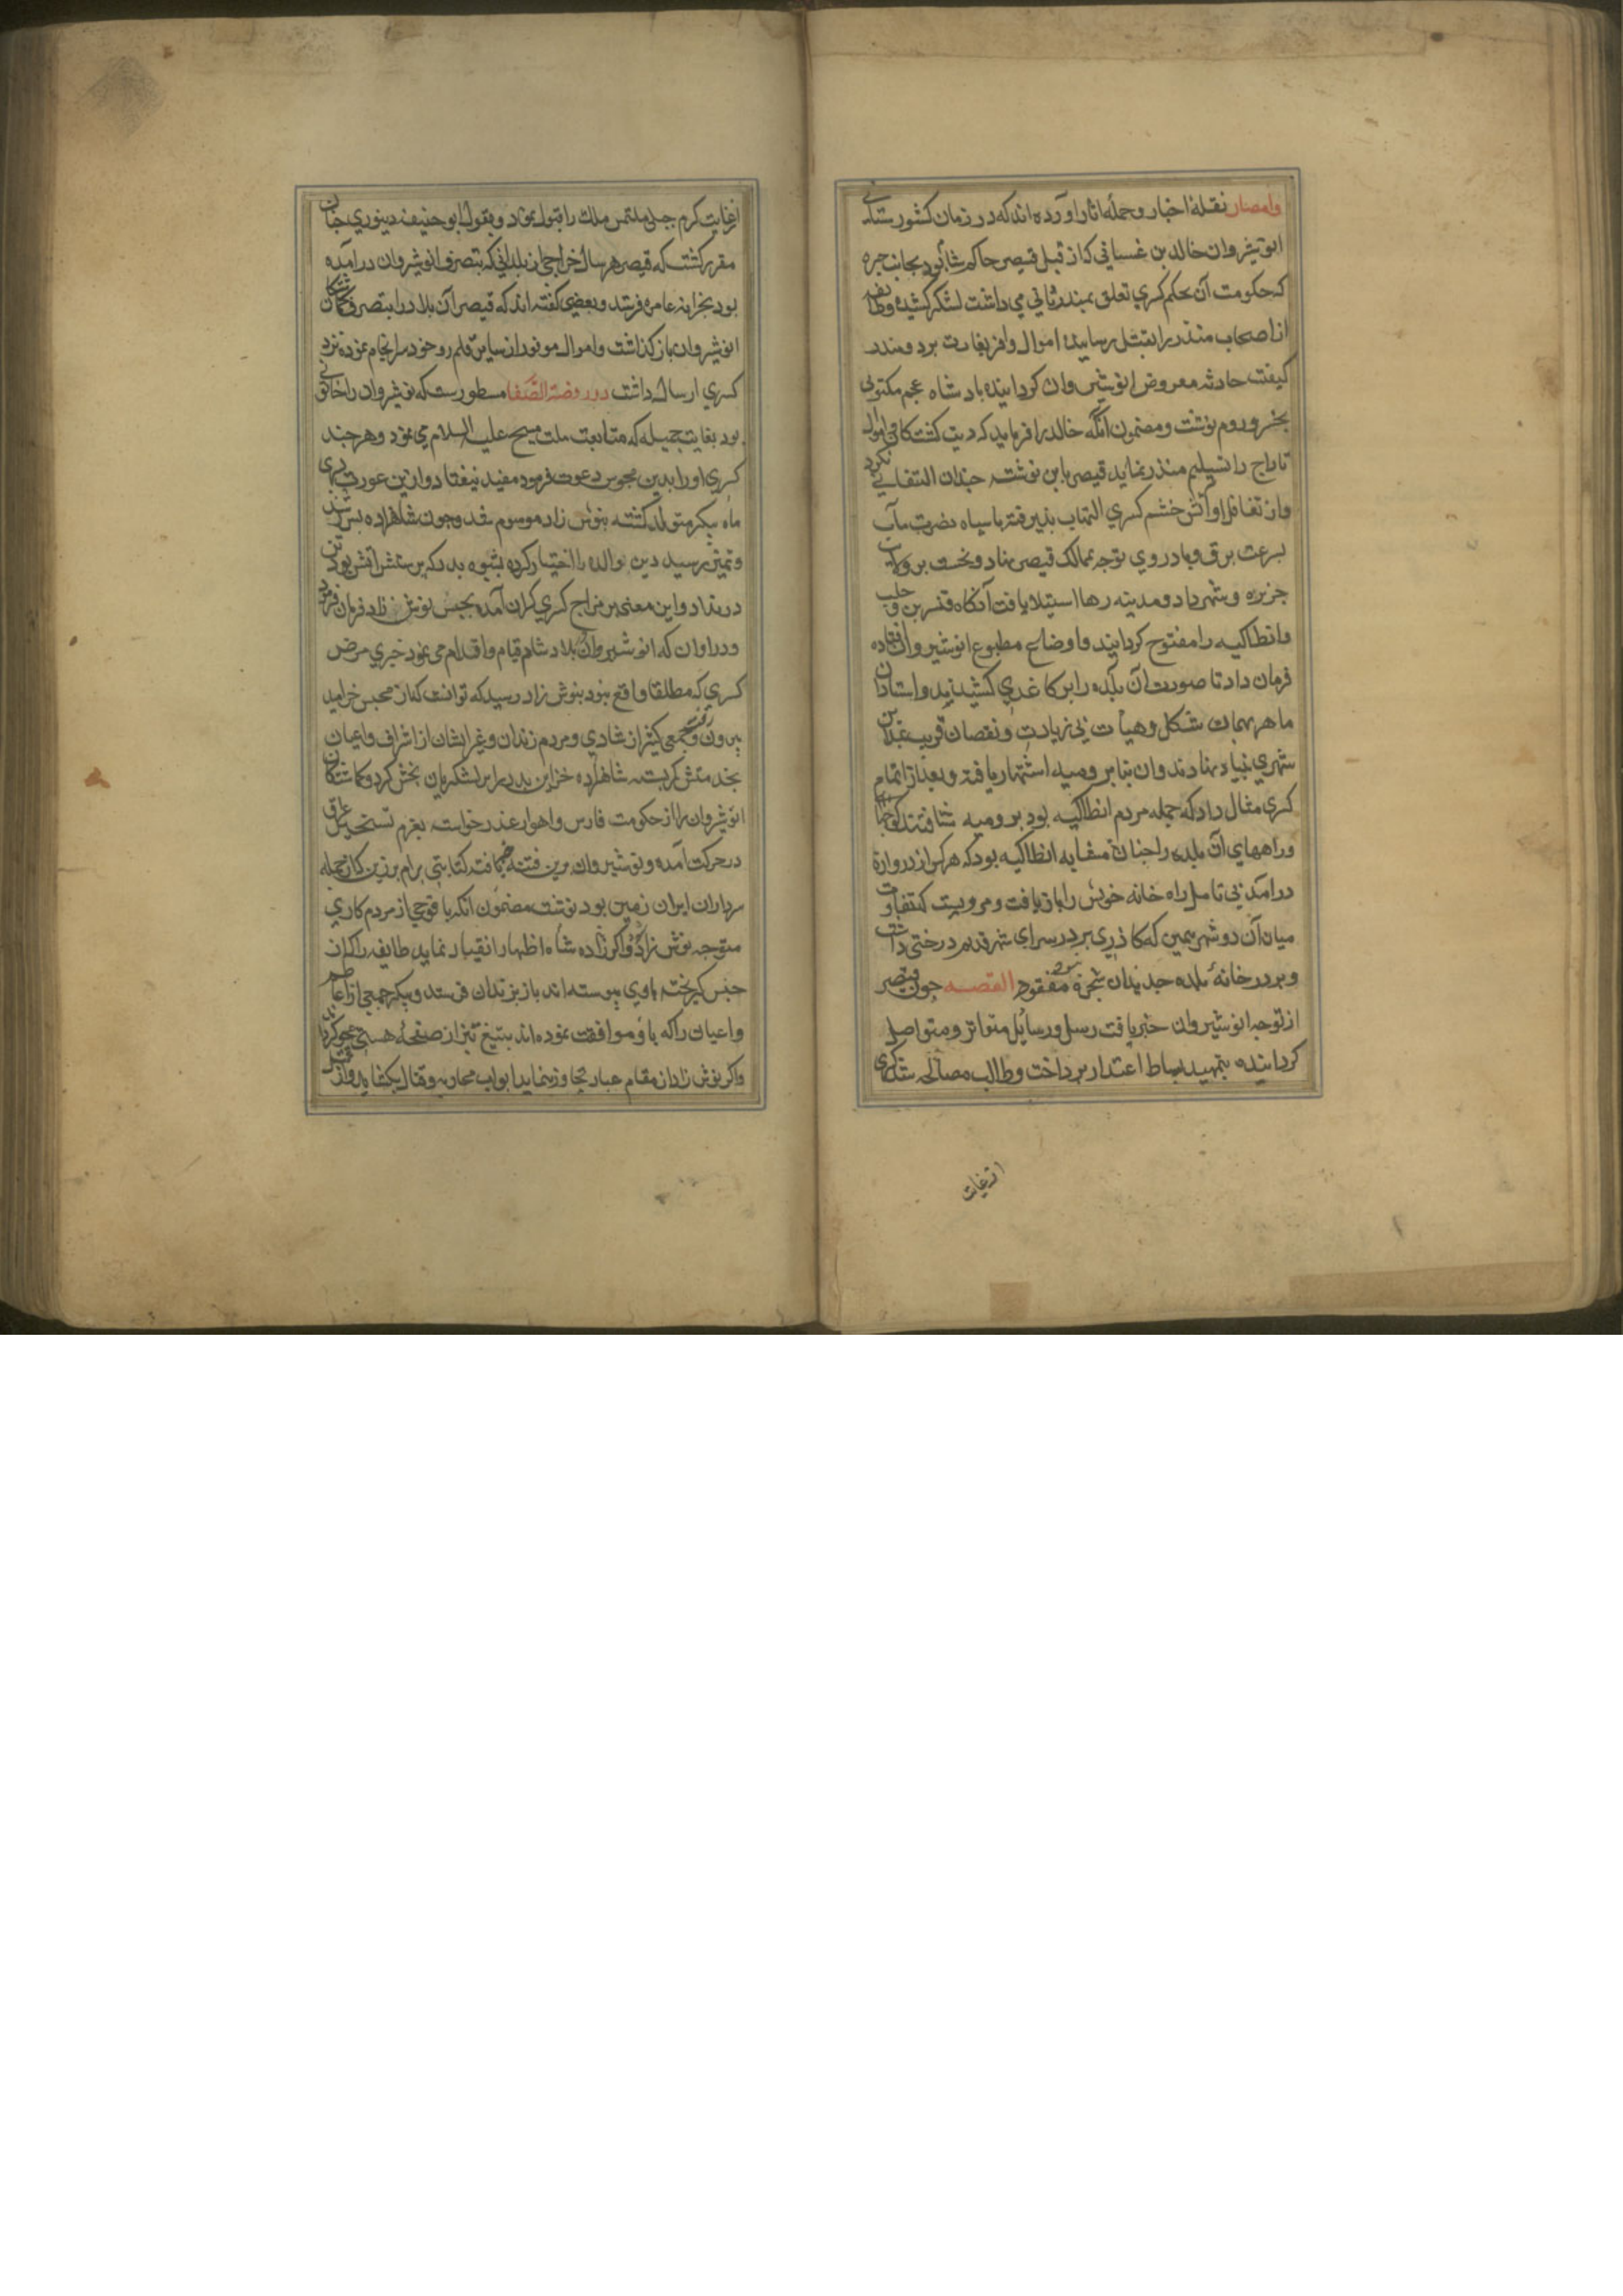 وامصار نقلهٔ اخبار و حملهٔ آثار آورده‌اند که در زمان کشورستانی
انوشیروان خالد بن غسانی که از قبل قیصر حاکم شام بود بجانب حیره
که حکومت آن بحکم کسری تعلق بمنذر ثانی می داشت لشکر کشیده وطایفه
از اصحاب منذر را بقتل رسانیده اموال وافر بغارت برد ومنذر
کیفیت حادثه معروض انوشیروان کردانیده بادشاه عجم مکتوبی
بخسرو روم نوشت ومضمون آنکه خالد را فرماید که دیت کشتکان واموال
تاراج را تسلیم منذر نماید قیصر باین نوشته چندان التفاتی نکرد
واز تغافل او آتش خشم کسری التهاب بذیرفته باسپاه نصرت مآب
بسرعت برق وباد روی توجه بممالک قیصر نهاد ونخست بر ولایت
جزیره و شهر دارا ومدینه رها استیلا یافت آنکاه قنسرین وحلب
وانطاکیه را مفتوح کردانید واوضاع مطبوع انوشیروان افتاده
فرمان داد تا صورت آن بلده را بر کاغدی کشیدند واستادان
ماهر بهمان شکل وهیأت بی زیادت ونقصان قریب بمداین
شهری بنیاد نهادند وان بنا برومیه اشتهار یافته وبعد از اتمام
کسری مثال داد که جمله مردم انطاکیه بود برومیه شتافتند
وراههای آن بلده را چنان مشابه انطاکیه بود که هرکس از دروازه
درآمد بی تامل راه خانه خویش را باز یافت ومرویست که تفاوت
میان آن دو شهر همین که کاذری بر در سرای شهر قدیم درختی داشت
وبر در خانهٔ بلده جدید آن شجره مفقود بود القصه چون قیصر
از توجه انوشیروان خبر یافت رسل ورسایل متواتر ومتواصل
کردانیده بتمهید بساط اعتذار برداخت وطالب مصالحه شد کسری
از غایت
از غایت کرم جبلی ملتمس ملک را قبول نمود وبقول ابو حنیفه دینوری چنان
مقرر کشت که قیصر هر سال خراجی از بلدانی که بتصرف انوشیروان درآمده
بود بخزانه عامره فرستد وبعضی کفته اند که قیصر آن بلاد را بتصرف کماشتکان
انوشیروان باز کذاشت واموال موفور از سایر قلمرو خود سرانجام نموده نزد
کسری ارسال داشت در روضة الصفا مسطورست که نوشیروان را خاتونی
بود بغایت جمیله که متابعت ملت مسیح علیه السلام می نمود وهر چند
کسری او را بدین مجوس دعوت فرمود مفید نیفتاد واز این عورت پسری
ماه پیکر متولد کشته بنوش زاد موسوم شد وچون شاهزاده بسن رشد
وتمیز رسید دین والده را اختیار کرده بشیوه پدر که پرستش آتش بود تن
درنداد واین معنی بر مزاج کسری کران آمده بحبس نوش زاد فرمان فرمود
ودر اوان که انوشیروان ببلاد شام قیام واقدام می نمود خبری مرض
کسری که مطلقا واقع نبود بنوش زاد رسید که توانست که از محبس خرامید
بیرون رفت وجمعی کثیر از شادی ومردم زندان وغیر ایشان از اشراف واعیان
بخدمتش کربسته شاهزاده خزاین پدر را بر لشکریان بخش کرد وکماشتکان
انوشیروان را از حکومت فارس واهواز عذر خواسته بعزم تسخیر عراق
در حرکت آمد ونوشیروان برین فتنه کتابتی برام برزین که از جمله
سرداران ایران زمین بود نوشت مضمون آنکه با فوجی از مردم کاری
متوجه نوش زاد شو واکر زاده شاه اظهار انقیاد نماید طایفه را که از
حبس کریخته باوی پیوسته اند باز بزندان فرستد ودیکر جمعی از اعاظم
واعیان را که با او موافقت نموده اند بتیغ تیز از صفحهٔ هستی محو کرداند
واکر نوش زاد از مقام عناد تجاوز ننماید ابواب محاربه وقتال بکشاید واز قتل